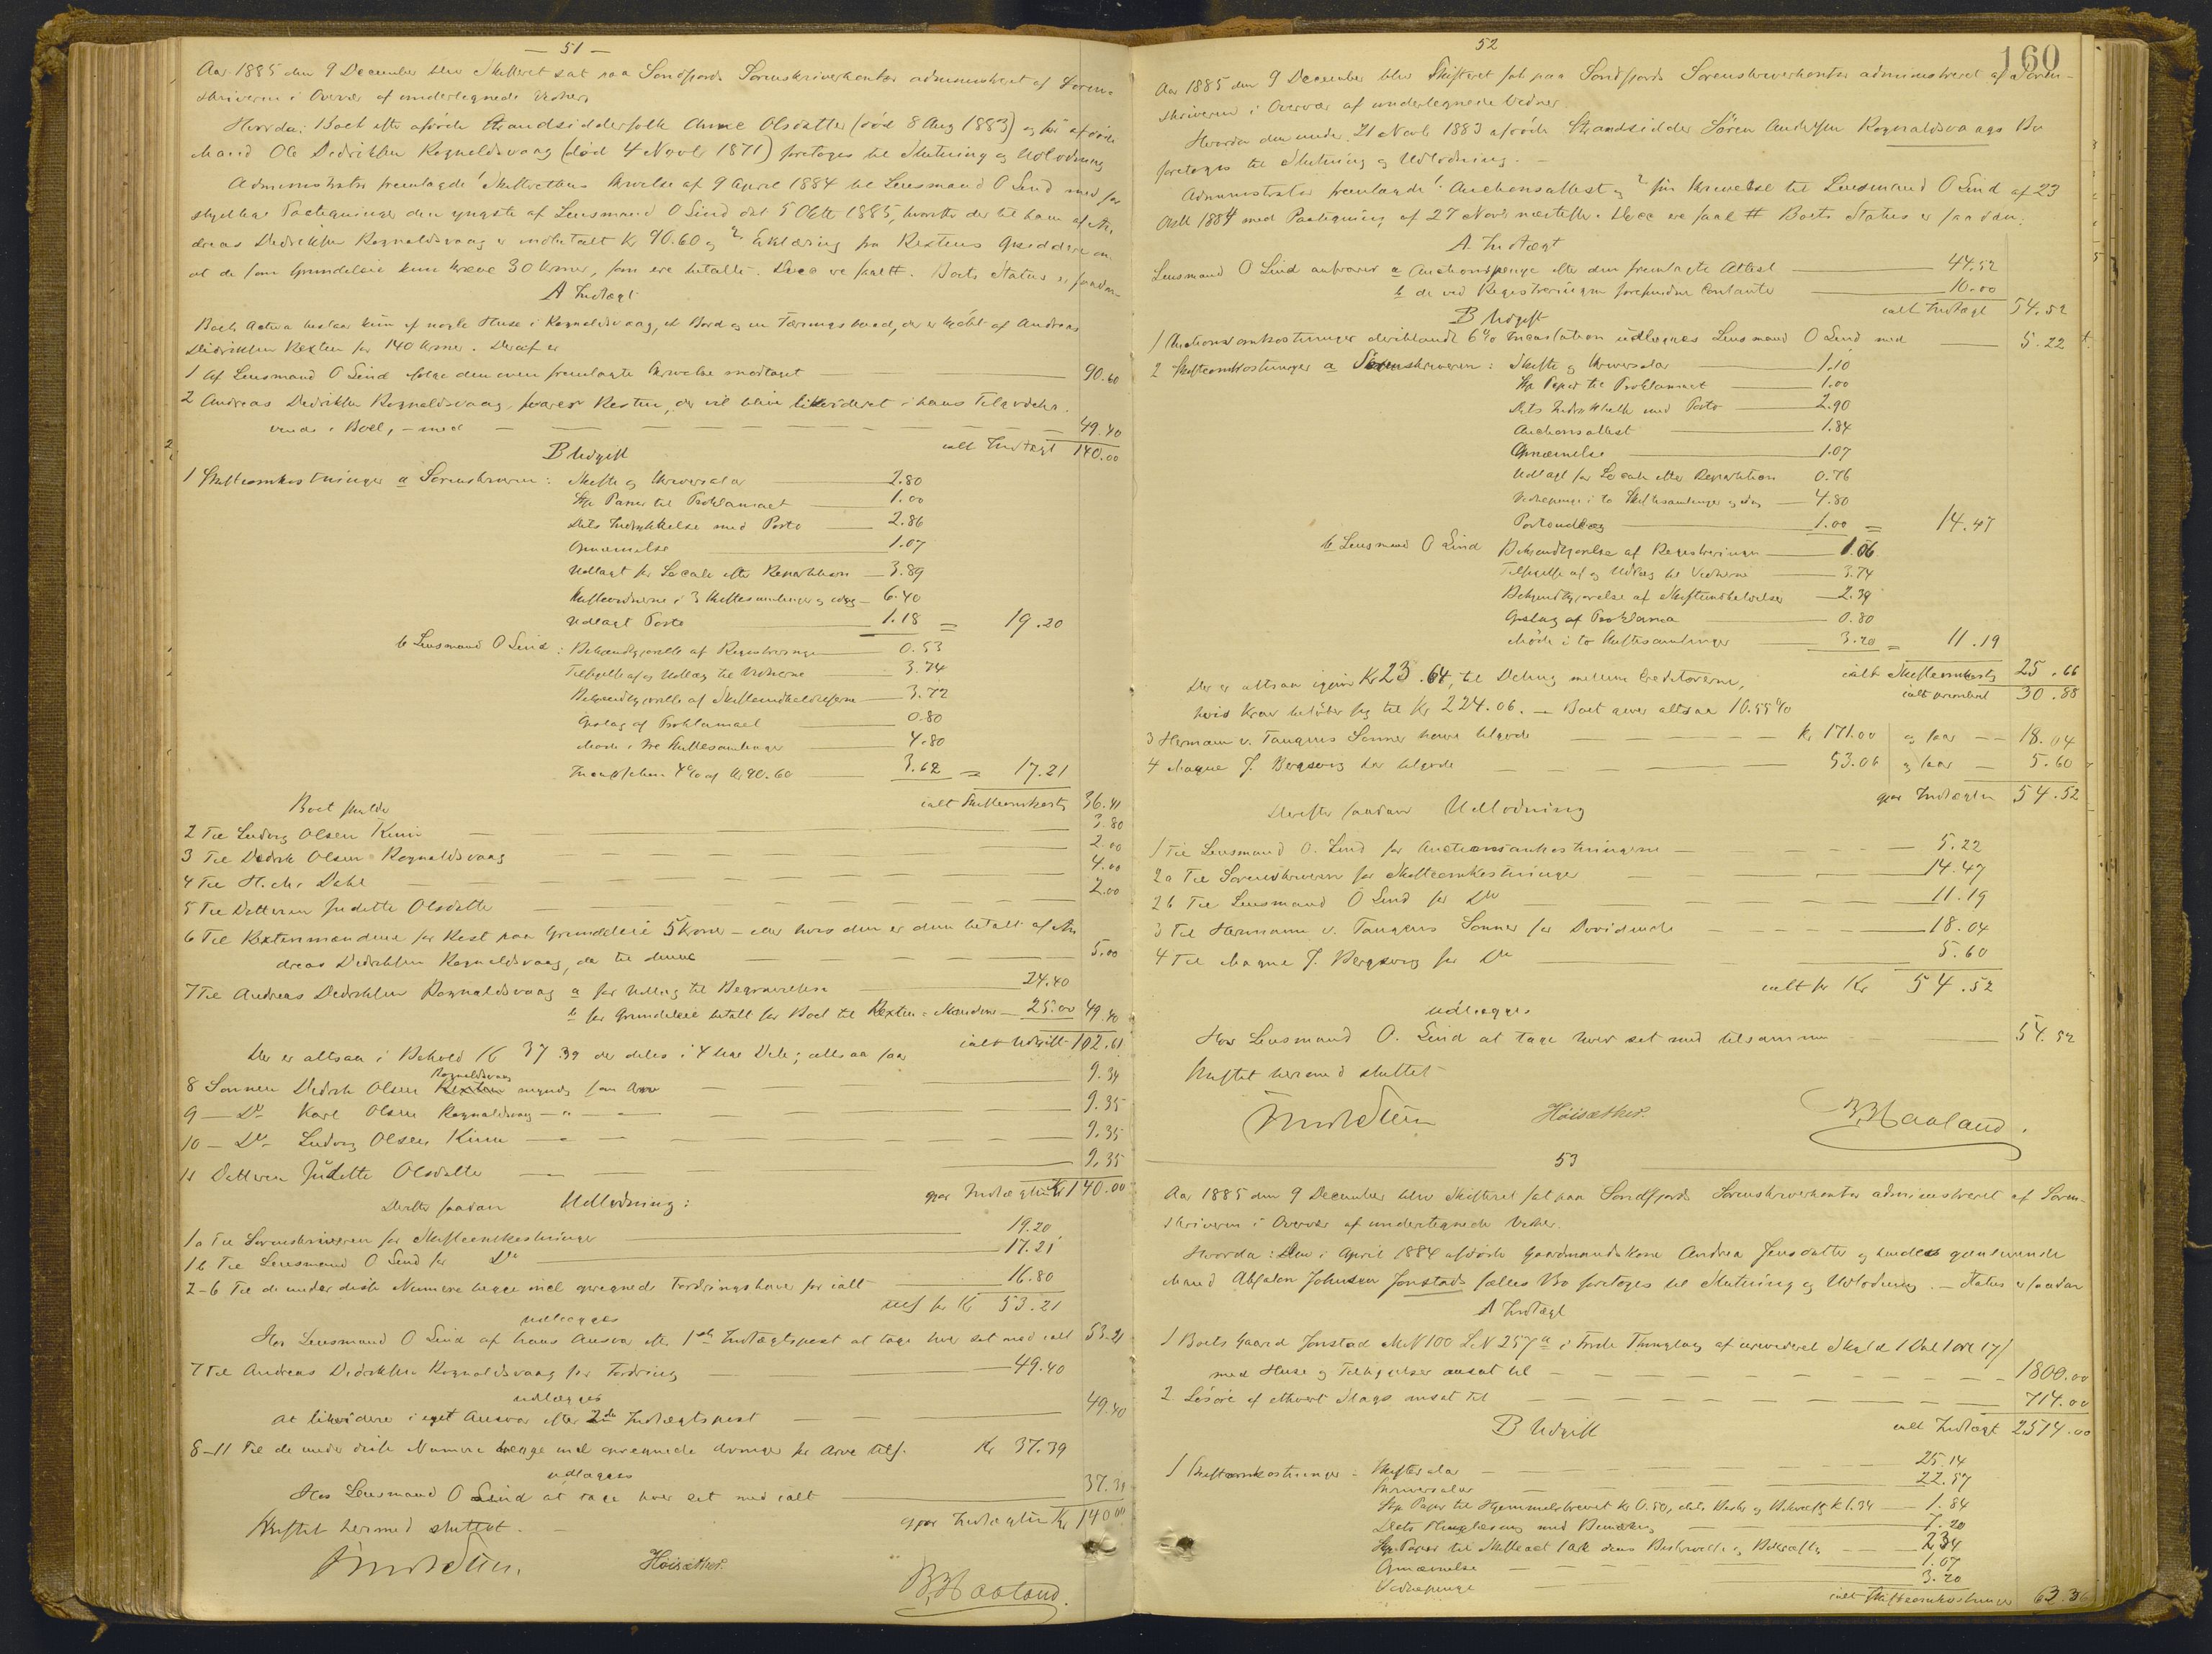 — 51 —
Aar 1885 den 9 December blev Skifteret sat paa Søndfjords Sorenskriverkontor administreret af Soren-
skriveren i Overvær af undertegnede Vidner
Hvorda: Boet efter afdøde Strandsidderfolk Anne Olsdatter (død 8 Aug 1883) og før afdøde
Mand Ole Dedriksen Rognaldsvaag (død 4 Novbr 1871) foretoges til Slutning og Udlodning
Administrator fremlagde 1 Skifterettens Skrivelse af 9 April 1884 til Lensmand O Lind med for
skjellige Paategninger den yngste af Lensmand O Lind dat 5 Oktbr 1885, hvorefter der til ham af An-
dreas Dedriksen Rognaldsvaag er indbetalt Kr 90.60 og 2 Erklæring fra Rextens Opsiddere om
at de som Grundeleie kun kræve 30 kroner, som ere betalte. Disse ere saal #. Boets Status er saadan
A Indtægt
Boets Activa bestaar kun af nogle Huse i Rognaldsvaag, et Bord og en Færingsbaad, der er kjøbt af Andreas
Didriksen Rexten for 140 kroner. Deraf er
1 Af Lensmand O Lind ifølge den oven fremlagte Skrivelse modtaget — 90.60
2 Andreas Dedriksen Rognaldsvaag svarer Resten, der vil blive likvideret i hans Tilgodeha-
vende i Boet, — med — 49.40
B Udgift ialt Indtægt 140.00
1 Skifteomkostninger a Sorenskriveren: Skifte og Skriversalar — 2.80
Stp Papir til Proklamaet — 1.00
Dets Indrykkelse med Porto — 2.86
Opnævnelse — 1.07
Udlagt for Locale efter Repartition — 3.89
Skiftevidnerne i 3 Skiftesamlinger og idag — 6.40
Udlagt Porto — 1.18 = 19.20
b Lensmand O Lind: Bekjendtgjørelse af Registreringen — 0.53
Tilsigelse af og Udlæg til Vidnerne — 3.74
Bekjendtgjørelse af Skifteindkaldelserne — 3.72
Opslag af Proklamaet — 0.80
Møde i tre Skiftesamlinger — 4.80
Incassation 4% af Kr 90.60 — 3.62 = 17.21
Boet skylder ialt Skifteomkostn 36.41
2 Til Ludvig Olsen Kinn — 3.80
3 Til Dedrik Olsen Rognaldsvaag — 2.00
4 Til H. Chr Dahl — 4.00
5 Til Datteren Judette Olsdatter — 2.00
6 Til Rextenmændene for Rest paa Grundeleie 5 kroner — eller hvis den er dem betalt af An
dreas Dedriksen Rognaldsvaag, da til denne — 5.00
7 Til Andreas Dedriksen Rognaldsvaag a for Udlæg til Begravelsen — 24.40
b for Grundeleie betalt for Boet til Rexten-Mændene — 25.00 49.40
Der er altsaa i Behold Kr 37.39 der deles i 4 lige Dele; altsaa faar ialt Udgift 102.61
Rognaldsvaag
8 Sønnen Dedrik Olsen Rexten myndig som Arv — 9.34
9 — Do — Karl Olsen Rognaldsvaag — " — 9.35
10 — Do — Ludvig Olsen Kinn — " — 9.35
11 Datteren Judette Olsdatter — 9.35
Derefter saadan Udlodning: gjør Indtægten Kr 140.00
1a Til Sorenskriveren for Skifteomkostninger — 19.20
1b Til Lensmand O Lind for Do — 17.21
2-6 Til de under disse Numere begge incl opregnede Fordringshaver for ialt — 16.80
tils for Kr 53.21
udlægges
Hos Lensmand O Lind af hans Ansvar efter 1ste Indtægtspost at tage hver sit med ialt 53.21
7 Til Andreas Dedriksen Rognaldsvaag for Fordring — 49.40
udlægges
At likvidere i eget Ansvar efter 2den Indtægtspost — 49.40
8-11 Til de under disse Numere begge incl opregnede Arvinger for Arv tils. Kr 37.39
udlægges
Hos Lensmand O Lind at tage hver sit med ialt — 37.39
Skiftet hermed sluttet. gjør Indtægten Kr 140.00
Høisæther
B. Haaland.
52
160
Aar 1885 den 9 December blev Skifteret sat paa Søndfjords Sorenskriverkontor administreret af Soren-
skriveren i Overvær af undertegnede Vidner
Hvorda den under 21 Novbr 1883 afdøde Strandsidder Søren Andersen Rognaldsvaags Bo
foretoges til Slutning og Udlodning. —
Administrator fremlagde 1. Auctionsattest og 2 sin Skrivelse til Lensmand O Lind af 23
Oktb 1884 med Paategning af 27 Novbr næstefter. Disse ere saal # Boets Status er saadan:
A. Indtægt
Lensmand O Lind ansvarer a Auctionspenge efter den fremlagte Attest — 44.52
b de ved Registreringen forefundne Contanter — 10.00
B Udgift ialt Indtægt 54.52
1 Auctionsomkostninger deriblandt 6% Incassation udlægges Lensmand O Lind med — 5.22
2 Skifteomkostninger a Sorenskriveren: Skifte og Skriversalar — 1.10
Stp Papir til Proklamaet — 1.00
Dets Indrykkelse med Porto — 2.90
Auctionsattest — 1.84
Opnævnelse — 1.07
Udlagt for Locale efter Repartition 0.76
Vidnepenge i to Skiftesamlinger og idag — 4.80
Portoudlæg — 1.00 = 14.47
b Lensmand O Lind Bekjendtgjørelse af Registreringen — 1.06
Tilsigelse af og Udlæg til Vidnerne — 3.74
Bekjendtgjørelse af Skifteindkaldelser — 2.39
Opslag af Proklama — 0.80
Møde i to Skiftesamlinger — 3.20 = 11.19
Der er altsaa igjen Kr 23.64, til Deling mellem Creditorerne, ialt Skifteomkostn 25.66
hvis Krav beløber sig til Kr 224.06. — Boet giver altsaa 10.55% ialt prioritert 30.88
3 Hermann v. Tangens Sønner have tilgode — Kr 171.00 og faar — 18.04
4 Magne J. Bergsvig har tilgode — 53.06 og faar — 5.60
gjør Indtægten 54.52
Derefter saadan Udlodning
1 Til Lensmand O. Lind for Auctionsomkostningerne — 5.22
2a Til Sorenskriveren for Skifteomkostninger — 14.47
2b Til Lensmand O Lind for Do — 11.19
3 Til Hermann v. Tangens Sønner for Dividende — 18.04
4 Til Magne J. Bergsvig for Do — 5.60
ialt for Kr 54.52
udlægges
Hos Lensmand O. Lind at tage hver sit med tilsammen — 54.52
Skiftet hermed sluttet
Høisæther.
B. Haaland.
53
Aar 1885 den 9 December blev Skifteret sat paa Søndfjords Sorenskriverkontor administreret af Soren-
skriveren i Overvær af undertegnede Vidner.
Hvorda: Den i April 1884 afdøde Gaardmandskone Andrea Jensdatter og hendes gjenlevende
Mand Absalon Johnsen Jonstads fælles Bo foretoges til Slutning og Udlodning. — Status er saadan
A Indtægt
1 Boets Gaard Jonstad M.N 100 L.N 257a i Førde Thinglag af urevideret Skyld 1 Dal 1 ort 17/
med Huse og Tilhørelser ansat til — 1800.00
2 Løsøre af ethvert Slags ansat til — 714.00
B Udgift ialt Indtægt 2514.00
1 Skifteomkostninger: Skiftesalar — 25.14
Skriversalar — 22.57
Stp Papir til Hjemmelsbrevet Kr 0.50, dets Beskr og Bekræft Kr 1.34 — 1.84
Dets Thinglæsning med Bemærkn — 7.20
Stp. Papir til Skifteact 1 ark dens Beskrivelse og Bekræfts — 2.34
Opnævnelse — 1.07
Vidnepenge — 3.20
ialt Skifteomkostninger 63.36